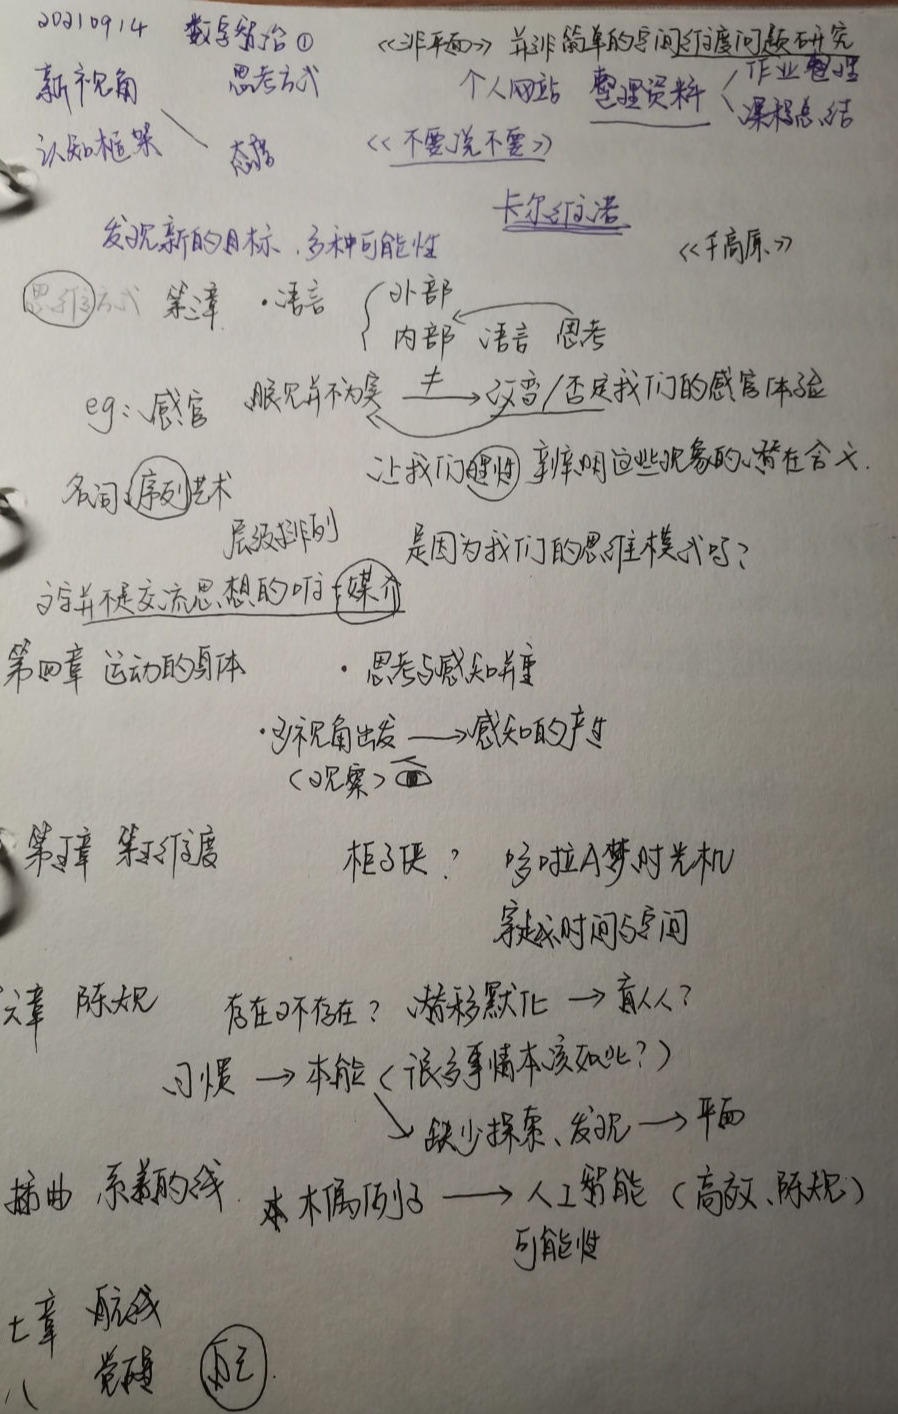 20210914 数字智治① 《非平面》并非简单的空间维度问题研究
新视角 思考方式 个人网站 整理资料 作业整理
课程总结
认知框架 态度 《不要说不要》
卡尔维诺
发现新的目标、多种可能性 《千高原》
思维方式 第三章 ·语言 外部
内部 语言 思考
eg: 感官 眼见并不为实 ≠ 改变/否定我们的感官体验
让我们 辨明这些现象的潜在含义.
名词: 序列艺术
层级排列 是因为我们的思维模式吗?
文字并不是交流思想的唯一媒介
第四章 运动的身体 ·思考与感知并重
·多视角出发 → 感知的产生
(观察)
第五章 第五维度 柜子侠? 哆啦A梦时光机
穿越时间与空间
六章 陈规 存在or不存在? 潜移默化 → 盲人?
习惯 → 本能 (很多事情本该如此?)
缺少探索、发现 → 平面
插曲 系着的线. 木偶例子 → 人工智能 (高效、陈规)
可能性
七章 航线
八 觉醒